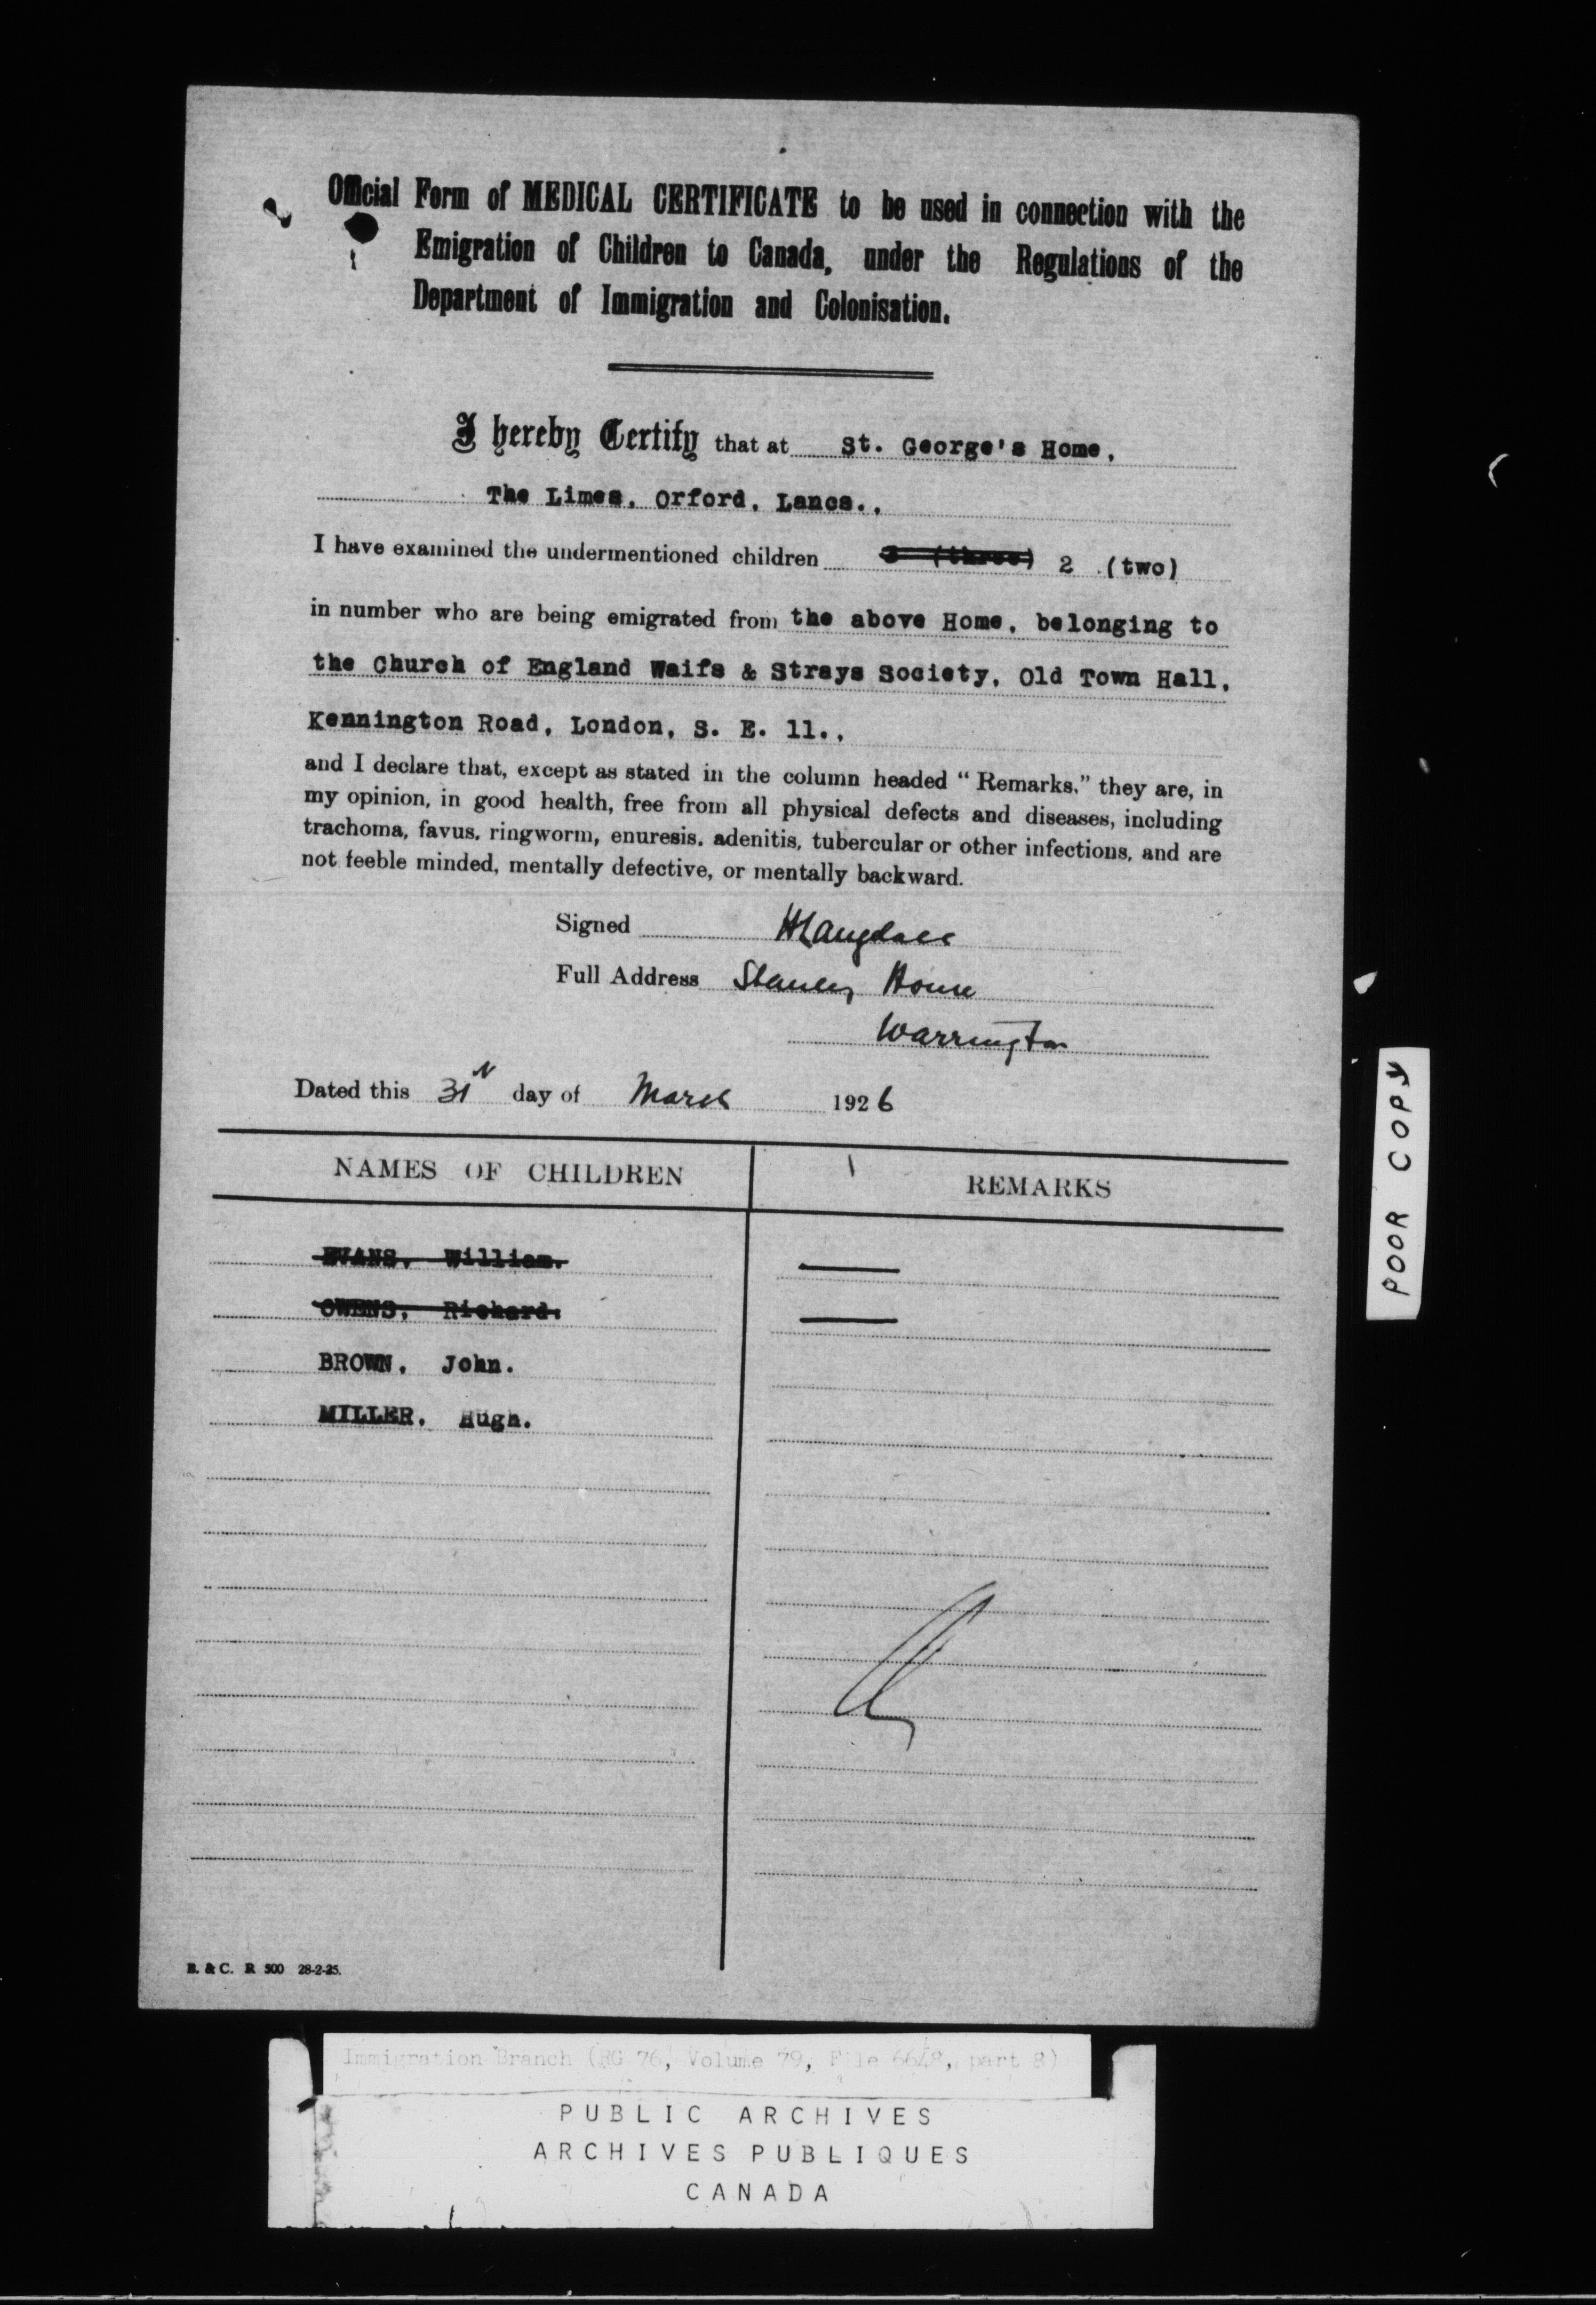 Official Form of MEDICAL CERTIFICATE to be used in connection with the
Emigration of Children to Canada, under the Regulations of the
Department of Immigration and Colonisation.
I hereby Certify that at St. George's Home,
The Limes, Orford, Lancs.,
I have examined the undermentioned children 3 (three) 2 (two)
in number who are being emigrated from the above Home, belonging to
the Church of England Waifs & Strays Society, Old Town Hall,
Kennington Road, London, S. E. 11.,
and I declare that, except as stated in the column headed "Remarks," they are, in
my opinion, in good health, free from all physical defects and diseases, including
trachoma, favus, ringworm, enuresis, adenitis, tubercular or other infections, and are
not feeble minded, mentally defective, or mentally backward.
Signed
Full Address Stanley House
Warrington
Dated this 31 day of March 1926
NAMES OF CHILDREN REMARKS
EVANS, William.
OWENS, Richard.
BROWN, John.
MILLER, Hugh.
B. & C. R 500 28-2-25.
POOR COPY
Immigration Branch (RG 76, Volume 79, File 6648, part 8)
PUBLIC ARCHIVES
ARCHIVES PUBLIQUES
CANADA